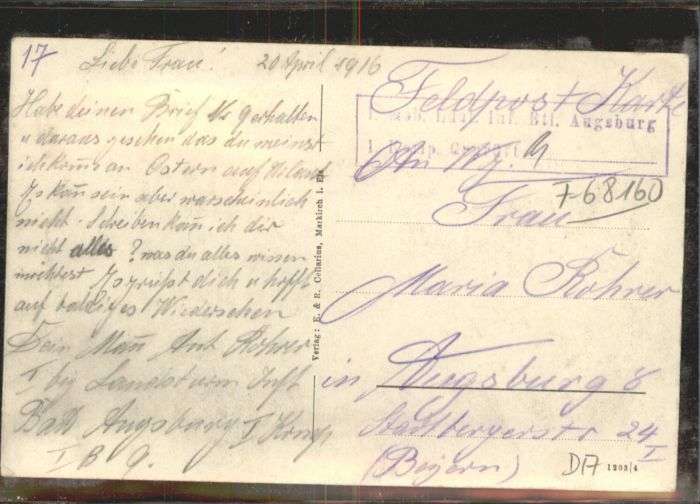 17 Liebe Frau! 20 April 1916
Habe deinen Brief No 9 erhalten
u daraus gesehen das du meinst
ich kom̄ an Ostern auf Urlaub
Es kan̄ sein aber warscheinlich
nicht. Schreiben kan̄ ich dir
nicht alles? was du alles wissen
möchtest Es grüßt dich u hofft
auf baldiges Wiedersehen
Dein Man Ant Rohrer
I bay Landsturm Inft
Batl Augsburg I Komp
I B 9.
Verlag: E. & R. Cellarius, Markirch i. Els.
Feldpost Karte
I. Landst. Inf. Btl. Augsburg
An
7-68160
Frau
Maria Rohrer
in Augsburg 8
Stadtbergerstr 24/I
(Bayern)
D17
1203/4